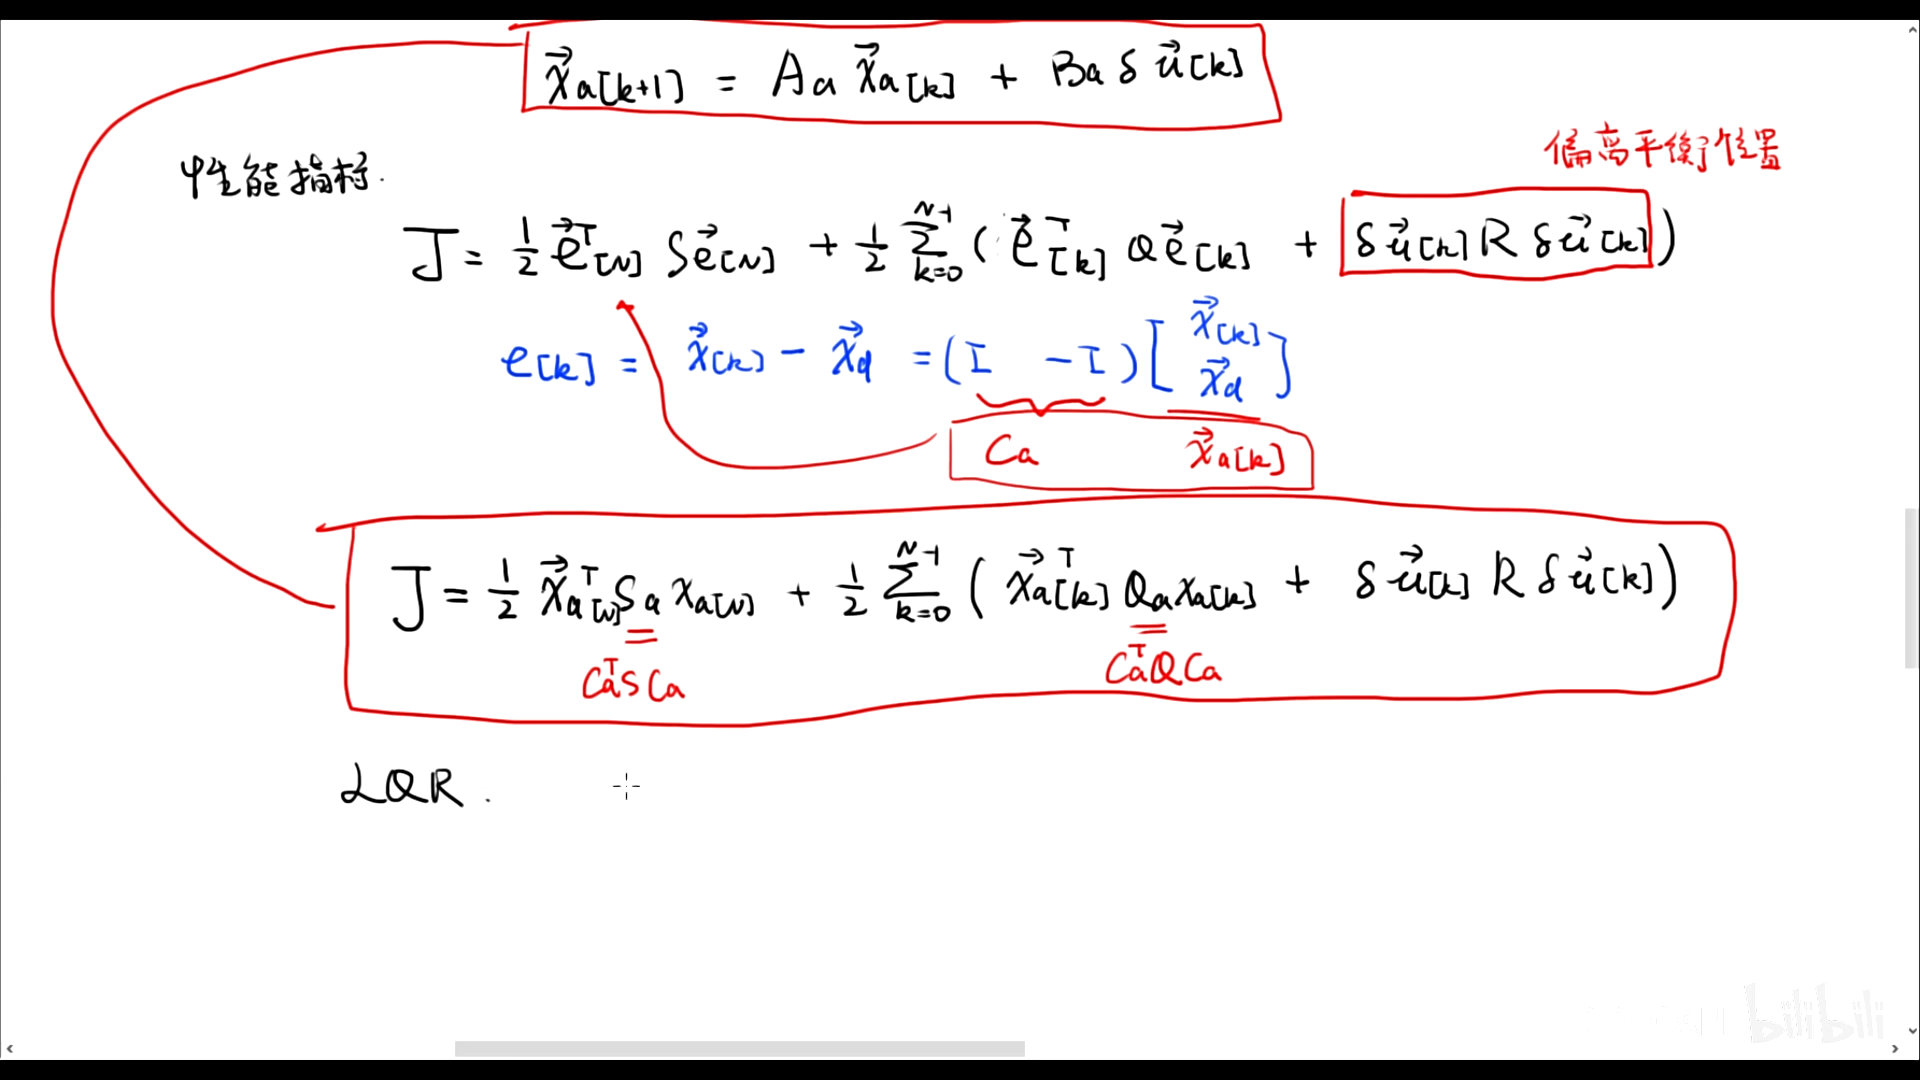 x⃗a[k+1] = Aa x⃗a[k] + Ba δu⃗[k]
偏离平衡位置
性能指标.
J = 1/2 e⃗ᵀ[N] S e⃗[N] + 1/2 Σ_{k=0}^{N-1} ( e⃗ᵀ[k] Q e⃗[k] + δu⃗[k] R δu⃗[k] )
e[k] = x⃗[k] - x⃗d = (I -I) [ x⃗[k] x⃗d ]
Ca x⃗a[k]
J = 1/2 x⃗aᵀ[N] Sa xa[N] + 1/2 Σ_{k=0}^{N-1} ( x⃗aᵀ[k] Qa xa[k] + δu⃗[k] R δu⃗[k] )
Caᵀ S Ca Caᵀ Q Ca
LQR.
bilibili